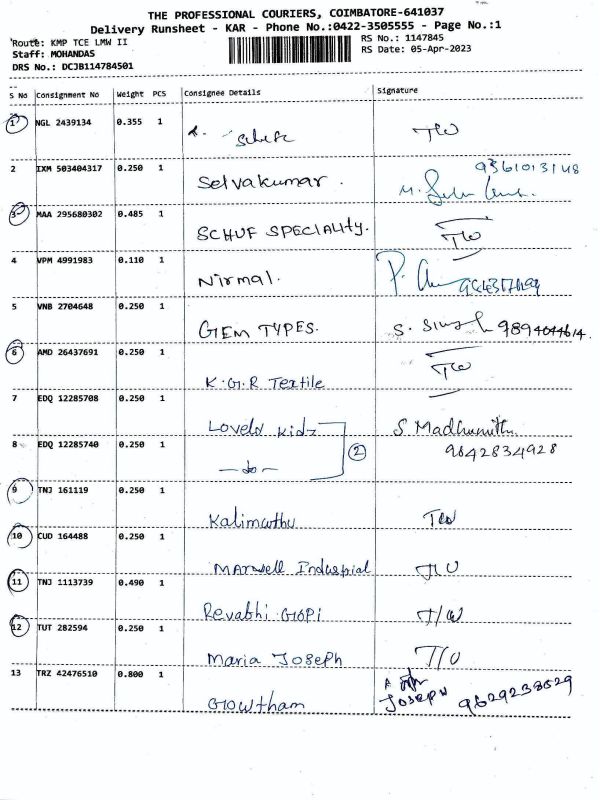 THE PROFESSIONAL COURIERS, COIMBATORE-641037
Delivery Runsheet - KAR - Phone No.:0422-3505555 - Page No.:1
Route: KMP TCE LMW II
RS No.: 1147845
Staff: MOHANDAS
RS Date: 05-Apr-2023
DRS No.: DCJB114784501
S No Consignment No Weight PCS Consignee Details Signature
1 NGL 2439134 0.355 1
2 IXM 503404317 0.250 1 Selvakumar. 9361013148
3 MAA 295680302 0.485 1 SCHUF SPECIALITY.
4 VPM 4991983 0.110 1 Nirmal.
5 VNB 2704648 0.250 1 GEM TYPES. S. 9894044614
6 AMD 26437691 0.250 1 K.G.R Textile
7 EDQ 12285708 0.250 1 Lovely Kidz S. Madhumitha
8 EDQ 12285740 0.250 1 —do— 2 9842834928
9 TNJ 161119 0.250 1 Kalimuthu
10 CUD 164488 0.250 1 Marwell Industrial
11 TNJ 1113739 0.490 1 Revabhi Gopi T/W
12 TUT 282594 0.250 1 Maria Joseph
13 TRZ 42476510 0.800 1 Gowtham Joseph